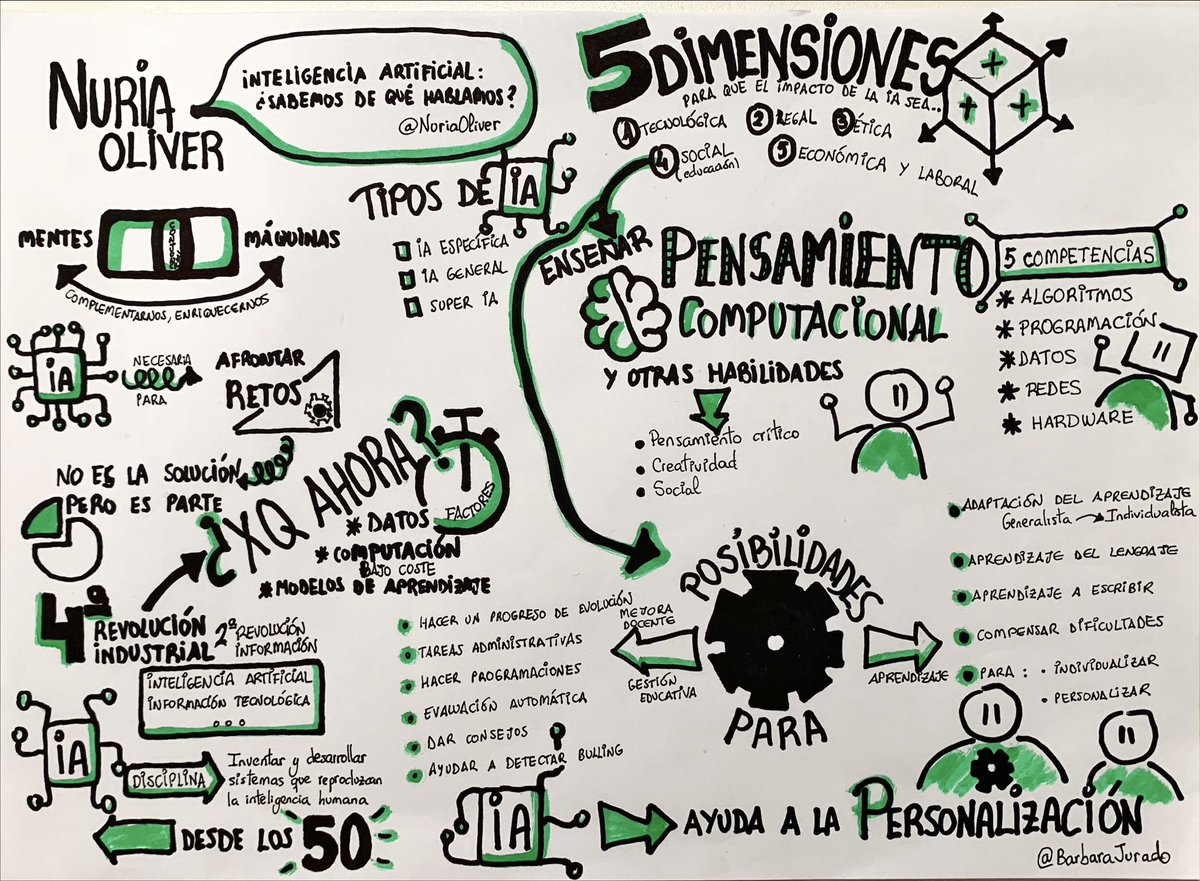 NURIA
OLIVER
INTELIGENCIA ARTIFICIAL:
¿SABEMOS DE QUÉ HABLAMOS?
@NuriaOliver
5 DIMENSIONES
PARA QUE EL IMPACTO DE LA IA SEA...
1 TECNOLÓGICA
2 LEGAL
3 ÉTICA
4 SOCIAL
(educación)
5 ECONÓMICA Y LABORAL
TIPOS DE IA
IA ESPECÍFICA
IA GENERAL
SUPER IA
MENTES
MÁQUINAS
COMPLEMENTARNOS, ENRIQUECERNOS
IA
NECESARIA
PARA
AFRONTAR
RETOS
NO ES LA SOLUCIÓN
PERO ES PARTE
ENSEÑAR
PENSAMIENTO
COMPUTACIONAL
Y OTRAS HABILIDADES
• Pensamiento crítico
• Creatividad
• Social
5 COMPETENCIAS
* ALGORITMOS
* PROGRAMACIÓN
* DATOS
* REDES
* HARDWARE
¿XQ AHORA?
FACTORES
* DATOS
* COMPUTACIÓN
BAJO COSTE
* MODELOS DE APRENDIZAJE
4ª REVOLUCIÓN
INDUSTRIAL
2ª REVOLUCIÓN
INFORMACIÓN
INTELIGENCIA ARTIFICIAL
INFORMACIÓN TECNOLÓGICA
...
IA
DISCIPLINA
Inventar y desarrollar
sistemas que reproduzcan
la inteligencia humana
DESDE LOS 50
POSIBILIDADES
PARA
MEJORA
DOCENTE
GESTIÓN
EDUCATIVA
• HACER UN PROGRESO DE EVOLUCIÓN
• TAREAS ADMINISTRATIVAS
• HACER PROGRAMACIONES
• EVALUACIÓN AUTOMÁTICA
• DAR CONSEJOS
• AYUDAR A DETECTAR BULLING
APRENDIZAJE
• ADAPTACIÓN DEL APRENDIZAJE
Generalista → Individualista
• APRENDIZAJE DEL LENGUAJE
• APRENDIZAJE A ESCRIBIR
• COMPENSAR DIFICULTADES
• PARA: • INDIVIDUALIZAR
• PERSONALIZAR
IA
AYUDA A LA PERSONALIZACIÓN
@BarbaraJurado